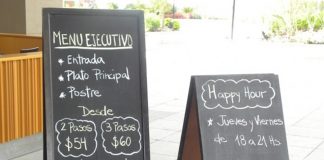 MENU EJECUTIVO
* Entrada
* Plato Principal
* Postre
Desde
2 Pasos
$54
3 Pasos
$60
Happy Hour
* Jueves y Viernes
de 18 a 21 Hs